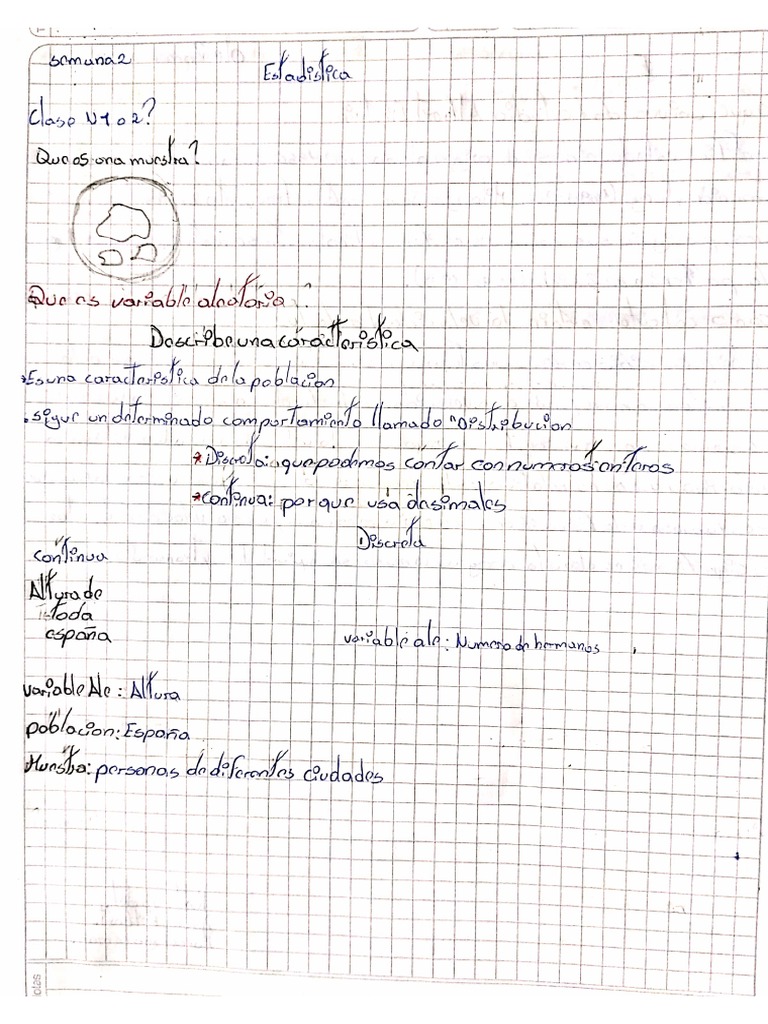 semana 2
Estadistica
Clase N1 o 2?
Que es una muestra?
Que es variable aleatoria?
Describe una caracteristica
Es una caracteristica de la poblacion
. sigue un determinado comportamiento llamado "Distribucion
* Discreta: que podemos contar con numeros enteros
* continua: porque usa desimales
Discreta
continua
Altura de
toda
españa
variable ale: Numero de hermanos
variable Ale: Altura
poblacion: España
Muestra: personas de diferentes ciudades
otas